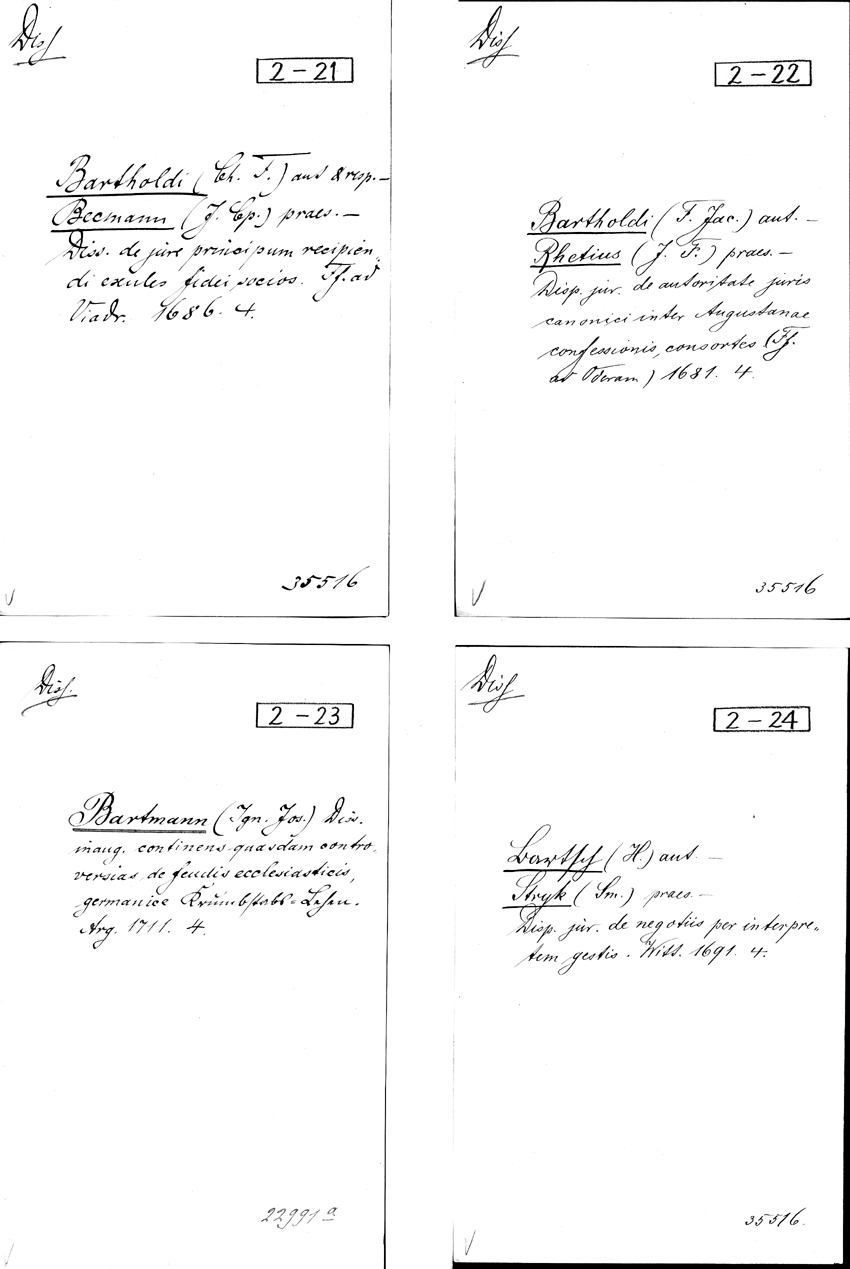 Diss
2-21
Bartholdi (Ch. F.) aut & resp. —
Becmann (J. Cp.) praes. —
Diss. de jure principum recipien-
di exules fidei socios. Ff. ad
Viadr. 1686. 4.
35516
V
Diss
2-22
Bartholdi (F. Jac.) aut. —
Rhetius (J. F.) praes. —
Disp. jur. de autoritate juris
canonici inter Augustanae
confessionis, consortes (Ff.
ad Oderam) 1681. 4.
35516
V
Diss.
2-23
Bartmann (Ign. Jos.) Diss.
inaug. continens quasdam contro-
versias de feudis ecclesiasticis,
germanice Krumbstabs-Lehen.
Arg. 1711. 4.
22991 a
Diss
2-24
Bartsch (H.) aut. —
Stryk (Sm.) praes. —
Disp. jur. de negotiis per interpre-
tem gestis. Witt. 1691. 4.
35516.
V